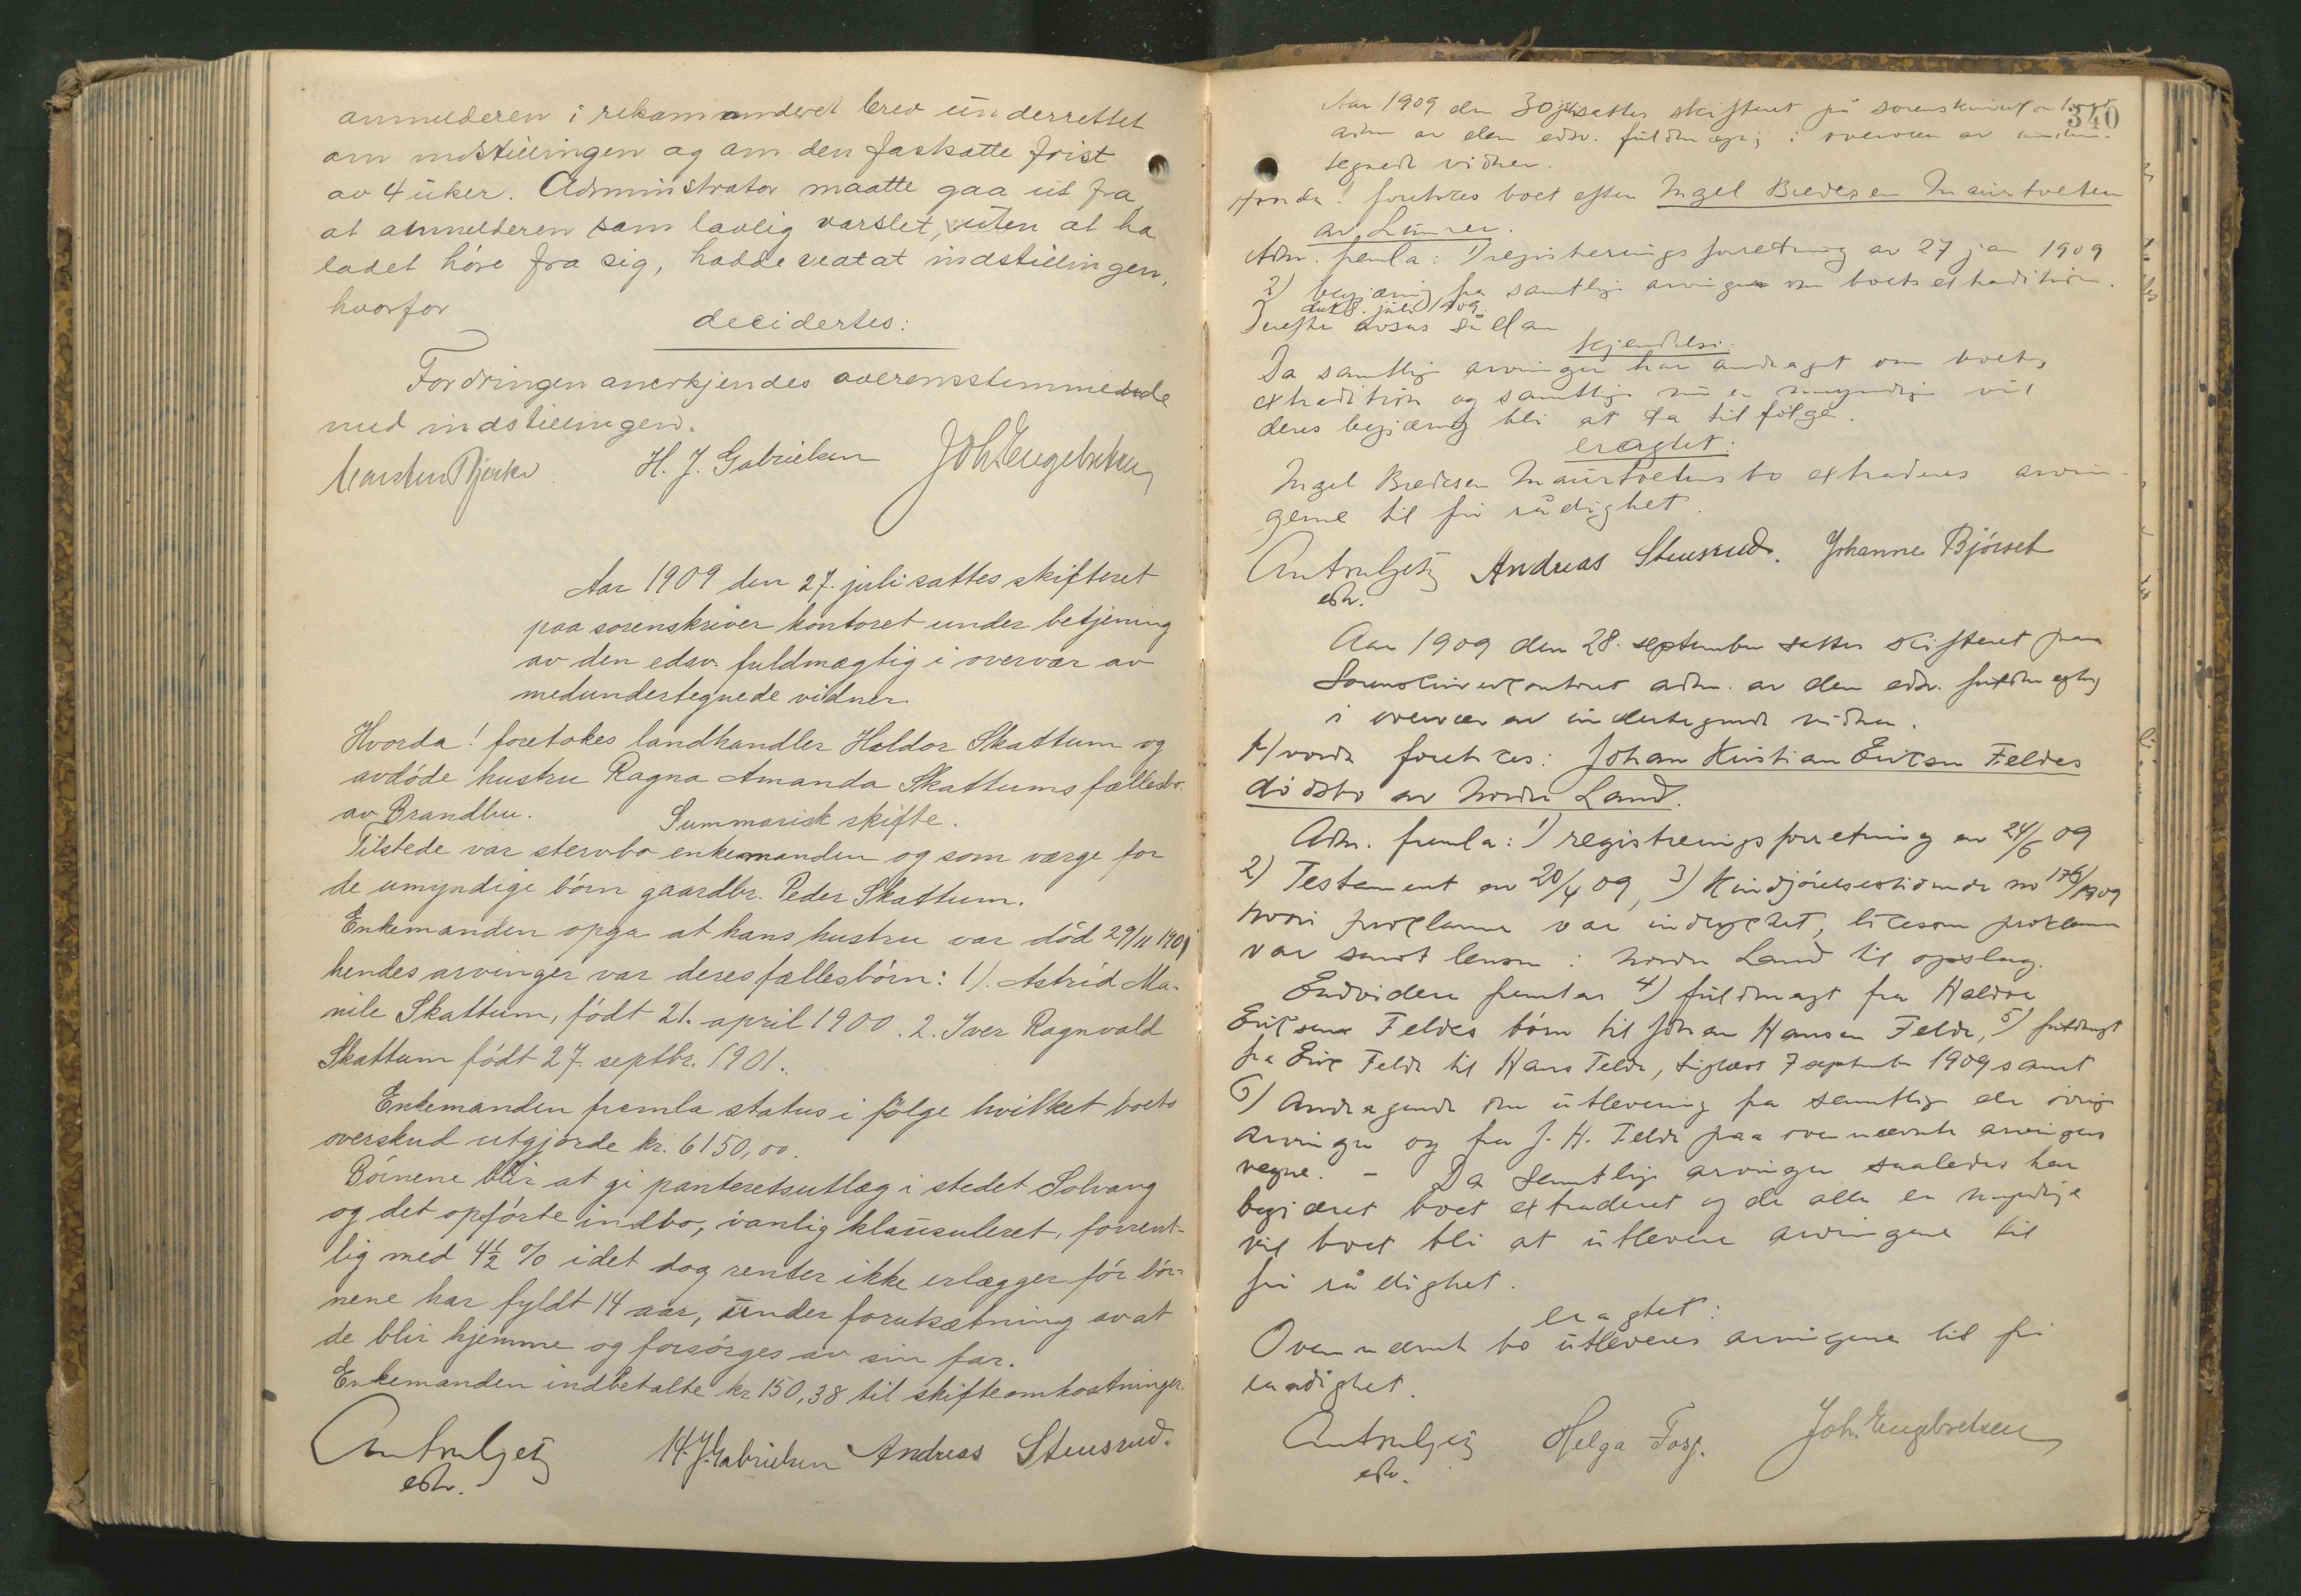 anmelderen i rekommanderet brev underrettet
om indstillingen og om den fastsatte frist
av 4 uker. Administrator maatte gaa ut fra
at anmelderen som lovlig varslet, uten at ha
ladet höre fra sig, hadde vedtat indstillingen,
hvorfor
decidertes:
Fordringen anerkjendes overensstemmende
med indstillingen.
Carsten Bjerke H. J. Gabrielsen Joh Engebretsen
Aar 1909 den 27. juli sattes skifteret
paa sorenskriver kontoret under betjening
av den edsv. fuldmægtig i overvær av
medundertegnede vidner.
Hvorda! foretokes landhandler Haldor Skattum og
avdöde hustru Ragna Amanda Skattums fællesbo
av Brandbu. Summarisk skifte.
Tilstede var stervbo enkemanden og som værge for
de umyndige börn gaardbr. Peder Skattum.
Enkemanden opga at hans hustru var död 29/11 1901
hendes arvinger var deres fællesbörn: 1). Astrid Ma-
nile Skattum, födt 21. april 1900. 2. Iver Ragnvald
Skattum födt 27. septbr. 1901.
Enkemanden fremla status i fölge hvilket boets
overskud utgjorde kr. 6150,00.
Börnene blir at gi panteretsutlæg i stedet Solvang
og det opförte indbo, vanlig klausuleret, forrent-
lig med 4½ % idet dog renter ikke erlægges för bör-
nene har fyldt 14 aar, under forutsætning av at
de blir hjemme og forsörges av sin far.
Enkemanden indbetalte kr 150,38 til skifteomkostninger.
H. J. Gabrielsen Andreas Stensrud.
edsv.
340
Aar 1909 den 30 juli sattes skifteret på sorenskriverkontoret
adm av den edsv. fuldmægtig i overvær av under-
tegnede vidner.
Hvorda! foretokes boet efter Ingel Bredesen Maurtveten
av Lunner.
Adm. fremla: 1) registreringsforretning av 27 jan 1909
2) begjæring fra samtlige arvinger om boets extradition.
dat 8. juli 1909.
Derefter avsas sådan
kjendelse:
Da samtlige arvinger har andraget om boets
extradition og samtlige nu er myndige vil
deres begjæring bli at ta til følge.
eragtet:
Ingel Bredesen Maurtvetens bo extraderes arvin-
gerne til fri rådighet.
Andreas Stensrud. Johanne Björset
edsv.
Aar 1909 den 28. september sattes skifteret paa
Sorenskriverkontoret adm. av den edsv. fuldmægtig
i overvær av undertegnede vidner.
Hvorda foretokes: Johan Kristian Eriksen Feldes
dödsbo av Nordre Land.
Adm. fremla: 1) registreringsforretning av 24/6 09
2) Testament av 20/4 09, 3) Kundgjörelsestidende no 176/1909
hvori proclama var indrykket, likesom proklama
var sendt lensm i Nordre Land til opslag.
Endvidere fremlas 4) fuldmagt fra Haldor
Eriksens Feldes børn til Johan Hansen Felde, 5) fuldmagt
fra Erik Felde til Hans Felde, tinglæst 7 september 1909 samt
6) Andragende om utlevering fra samtlige de övrige
arvinger og fra J. H. Felde paa ovennævnte arvingers
vegne. – Da samtlige arvinger saaledes har
begjæret boet extraderet og de alle er myndige
vil boet bli at utlevere arvingene til
fri rådighet.
eragtet:
Ovennævnte bo utleveres arvingene til fri
raadighet.
Helga Torp. Joh. Engebretsen
edsv.